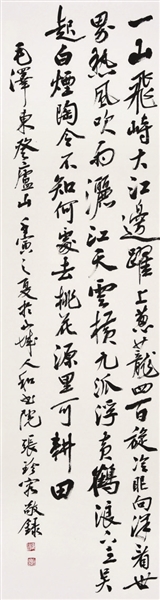 一山飛峙大江邊躍上葱蘢四百旋冷眼向洋看世
界熱風吹雨灑江天雲橫九派浮黄鶴浪下三吴
起白煙陶令不知何處去桃花源里可耕田
毛澤東登廬山 壬寅之夏於山城人和書院張珍敬録